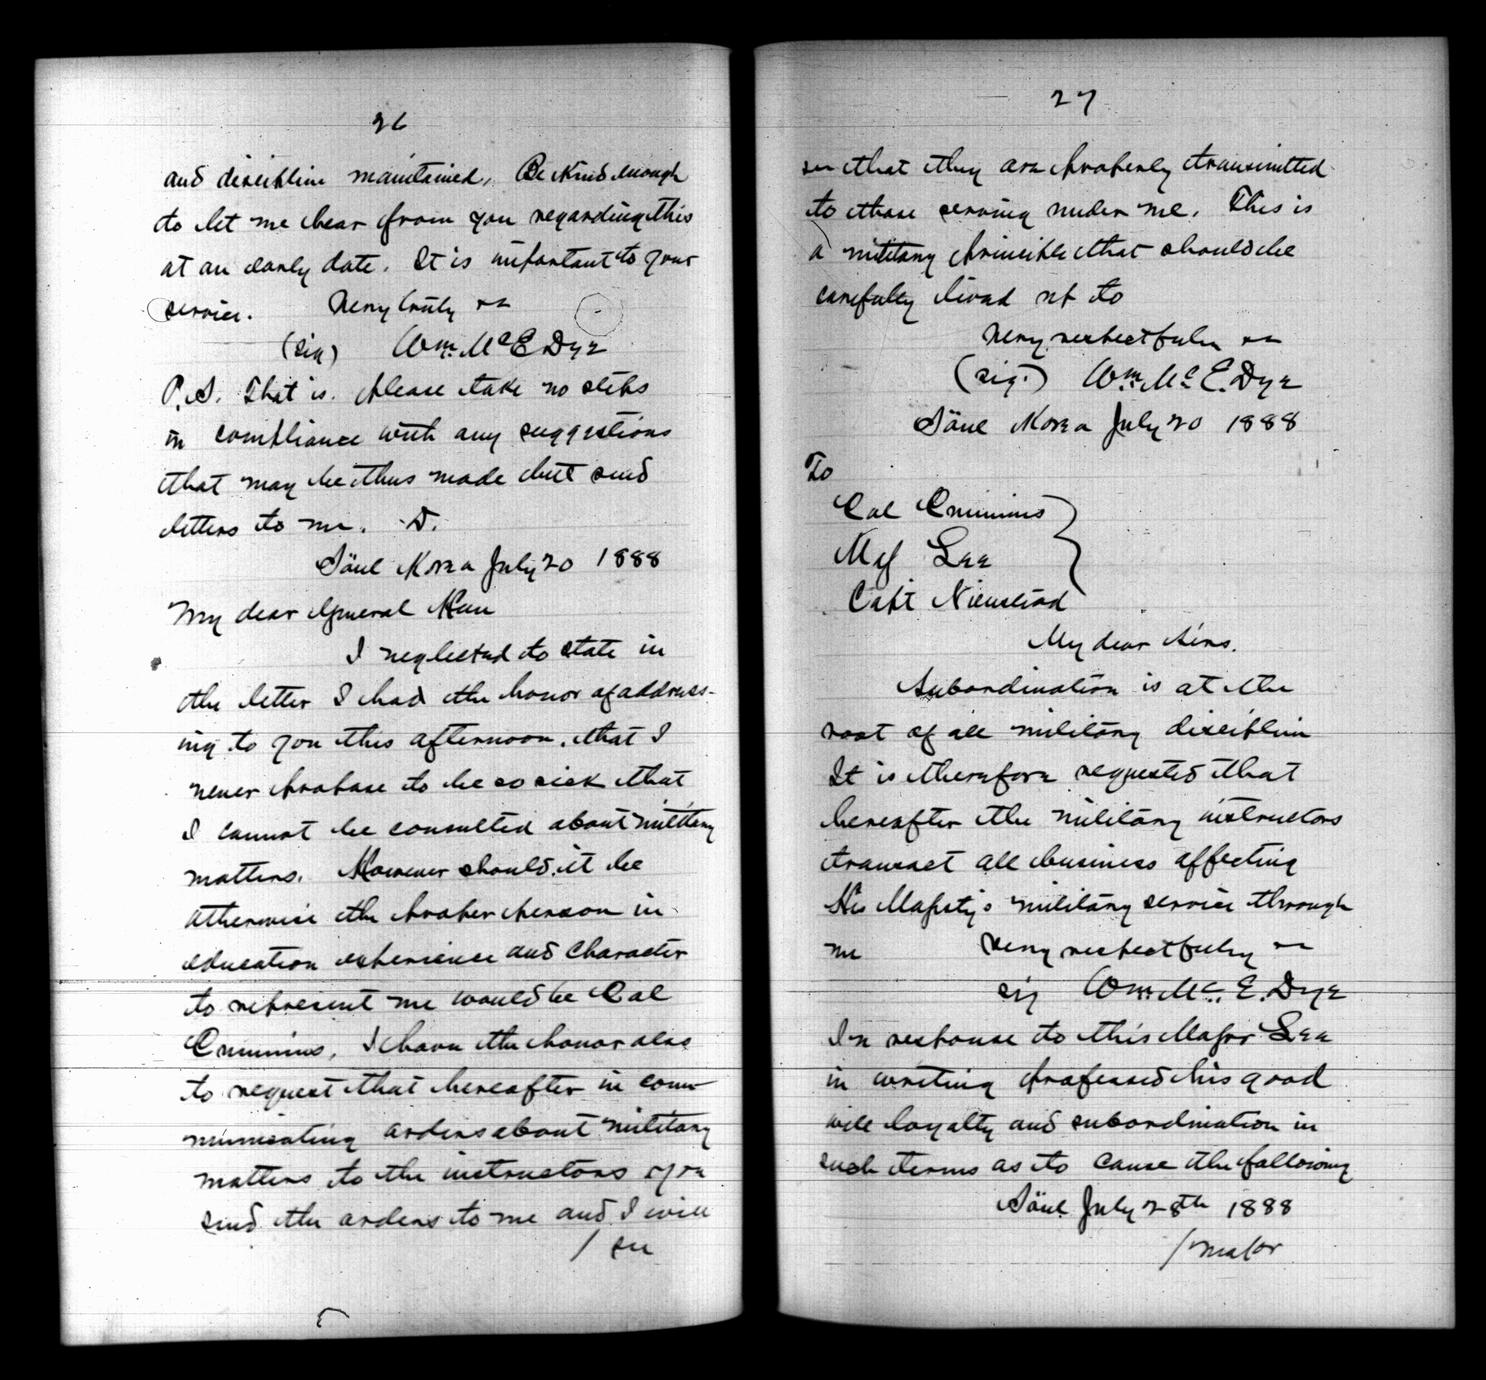 26
and discipline maintained. Be kind enough
to let me hear from you regarding this
at an early date. It is important to your
service. Very truly
(sig) Wm. McE Dye
P.S. That is. please take no steps
in compliance with any suggestions
that may be thus made but send
letters to me. D.
Söul Korea July 20 1888
My dear General Han
I neglected to state in
the letter I had the honor of address-
ing to you this afternoon, that I
never propose to be so sick that
I cannot be consulted about military
matters. However should it be
otherwise the proper person in
education experience and character
to represent me would be Col
Cummins. I have the honor also
to request that hereafter in com-
municating orders about military
matters to the instructors you
send the orders to me and I will
/ see
27
see that they are properly transmitted
to those serving under me. This is
a military principle that should be
carefully lived up to
Very respectfully
(sig.) Wm. Mc E. Dye
Söul Korea July 20 1888
To
Col Cummins
Maj Lee
Capt Nienstead
My dear Sirs.
Subordination is at the
root of all military discipline
It is therefore requested that
hereafter the military instructors
transact all business affecting
His Majesty's military service through
me Very respectfully
sig Wm. Mc. E. Dye
In response to this Major Lee
in writing professed his good
will loyalty and subordination in
such terms as to cause the following
Söul July 28th 1888
/ major